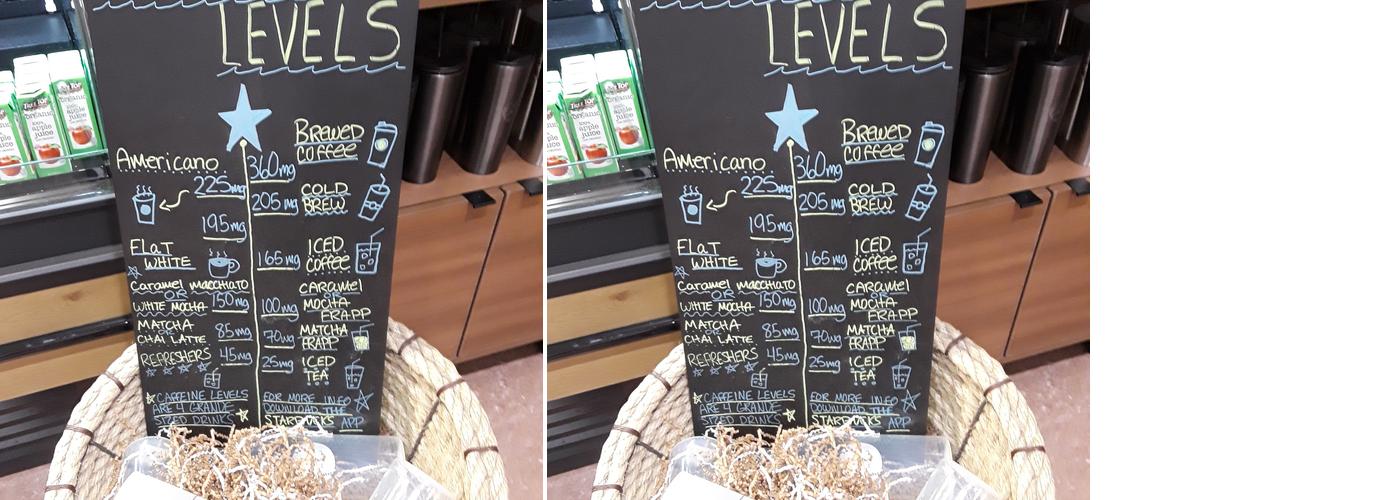 LEVELS
BREWED
COFFEE
360mg
Americano
225mg
COLD
BREW
205mg
195mg
FLAT
WHITE
ICED
COFFEE
165mg
Caramel macchiato
OR
WHITE MOCHA 150mg
CARAMEL
OR
MOCHA
FRAPP
100mg
MATCHA
OR
CHAI LATTE
85mg
MATCHA
FRAPP
70mg
REFRESHERS
45mg
ICED
TEA
25mg
CAFFEINE LEVELS
ARE 4 GRANDE
SIZED DRINKS
FOR MORE INFO
DOWNLOAD THE
STARBUCKS APP
TREE TOP
organic
100%
apple
juice
LEVELS
BREWED
COFFEE
360mg
Americano
225mg
COLD
BREW
205mg
195mg
FLAT
WHITE
ICED
COFFEE
165mg
Caramel macchiato
OR
WHITE MOCHA 150mg
CARAMEL
OR
MOCHA
FRAPP
100mg
MATCHA
OR
CHAI LATTE
85mg
MATCHA
FRAPP
70mg
REFRESHERS
45mg
ICED
TEA
25mg
CAFFEINE LEVELS
ARE 4 GRANDE
SIZED DRINKS
FOR MORE INFO
DOWNLOAD THE
STARBUCKS APP
TREE TOP
organic
100%
apple
juice